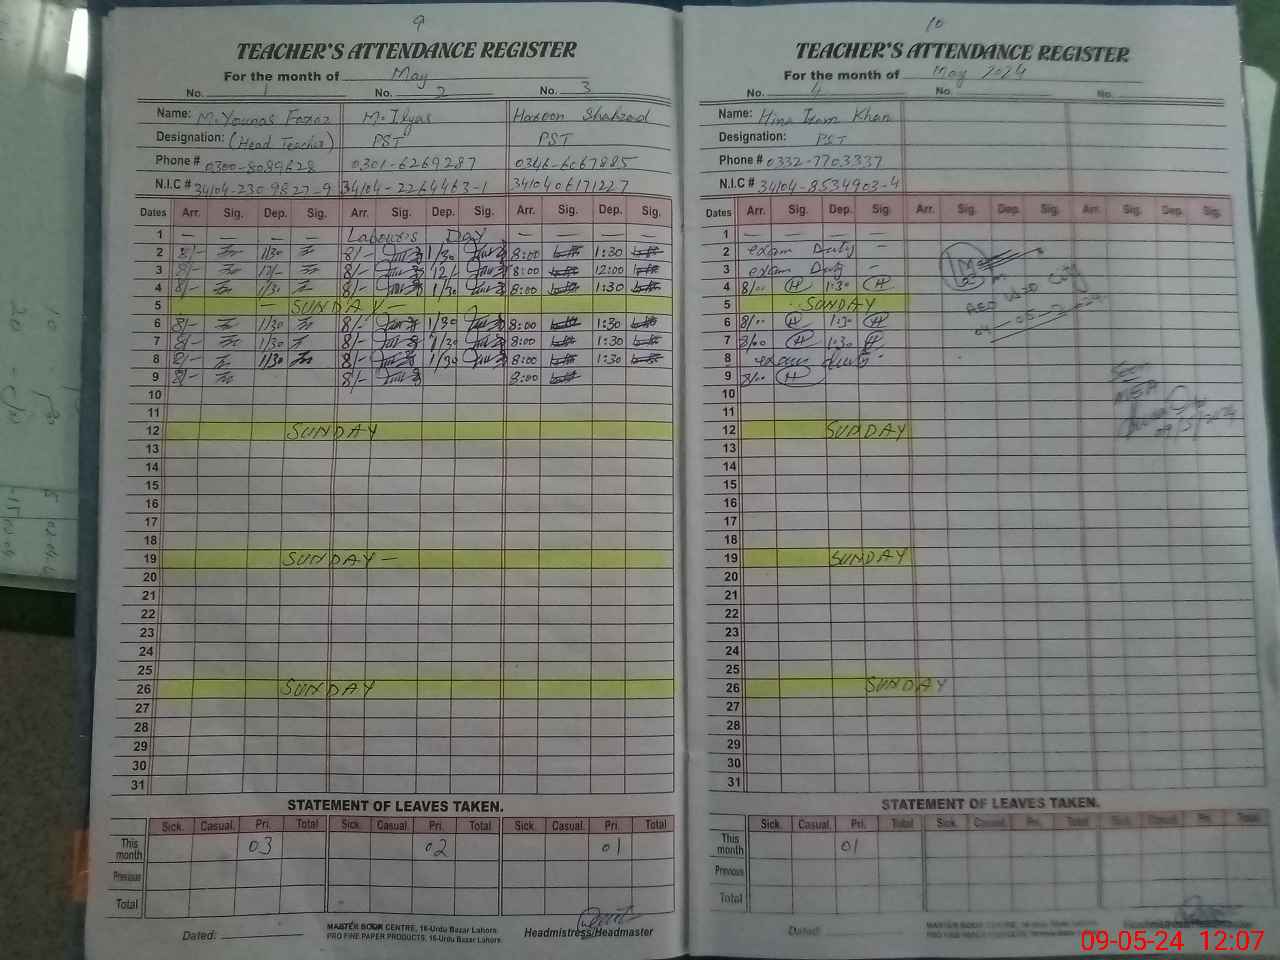 9
TEACHER'S ATTENDANCE REGISTER
For the month of May
No. 1 No. 2 No. 3
Name: M. Younas Faraz M. Ilyas Haroon Shahzad
Designation: (Head Teacher) PST PST
Phone # 0300-8089628 0301-6269287 0346-6067885
N.I.C # 34104-2309827-9 34104-2264463-1 3410406171227
Dates Arr. Sig. Dep. Sig. Arr. Sig. Dep. Sig. Arr. Sig. Dep. Sig.
1 — — — Labour's Day — — — —
2 8/- 1/30 8/- 1/30 8:00 1:30
3 8/- 12/- 8/- 12/- 8:00 12:00
4 8/- 1/30 8/- 1/30 8:00 1:30
5 — SUNDAY —
6 8/- 1/30 8/- 1/30 8:00 1:30
7 8/- 1/30 8/- 1/30 8:00 1:30
8 8/- 1/30 8/- 1/30 8:00 1:30
9 8/- 8/- 8:00
10
11
12 SUNDAY
13
14
15
16
17
18
19 SUNDAY —
20
21
22
23
24
25
26 SUNDAY
27
28
29
30
31
STATEMENT OF LEAVES TAKEN.
Sick. Casual. Pri. Total Sick. Casual. Pri. Total Sick. Casual. Pri. Total
This month 03 02 01
Previous
Total
Dated:
MASTER BOOK CENTRE, 16-Urdu Bazar Lahore.
PRO FINE PAPER PRODUCTS, 16-Urdu Bazar Lahore.
Headmistress/Headmaster
10
TEACHER'S ATTENDANCE REGISTER
For the month of May 2024
No. 4 No. No.
Name: Hina Ikram Khan
Designation: PST
Phone # 0332-7703337
N.I.C # 34104-8534903-4
Dates Arr. Sig. Dep. Sig. Arr. Sig. Dep. Sig. Arr. Sig. Dep. Sig.
1 — — — —
2 exam Duty —
3 exam Duty —
4 8/00 H 1:30 H
5 SUNDAY
6 8/00 H 1:30 H
7 8/00 H 1:30 H
8 exam duty
9 8/00 H
10
11
12 SUNDAY
13
14
15
16
17
18
19 SUNDAY
20
21
22
23
24
25
26 SUNDAY
27
28
29
30
31
AEO City
Seen
MEA
09/5/2024
STATEMENT OF LEAVES TAKEN.
Sick. Casual. Pri. Total Sick. Casual. Pri. Total Sick. Casual. Pri. Total
This month 01
Previous
Total
Dated:
09-05-24 12:07